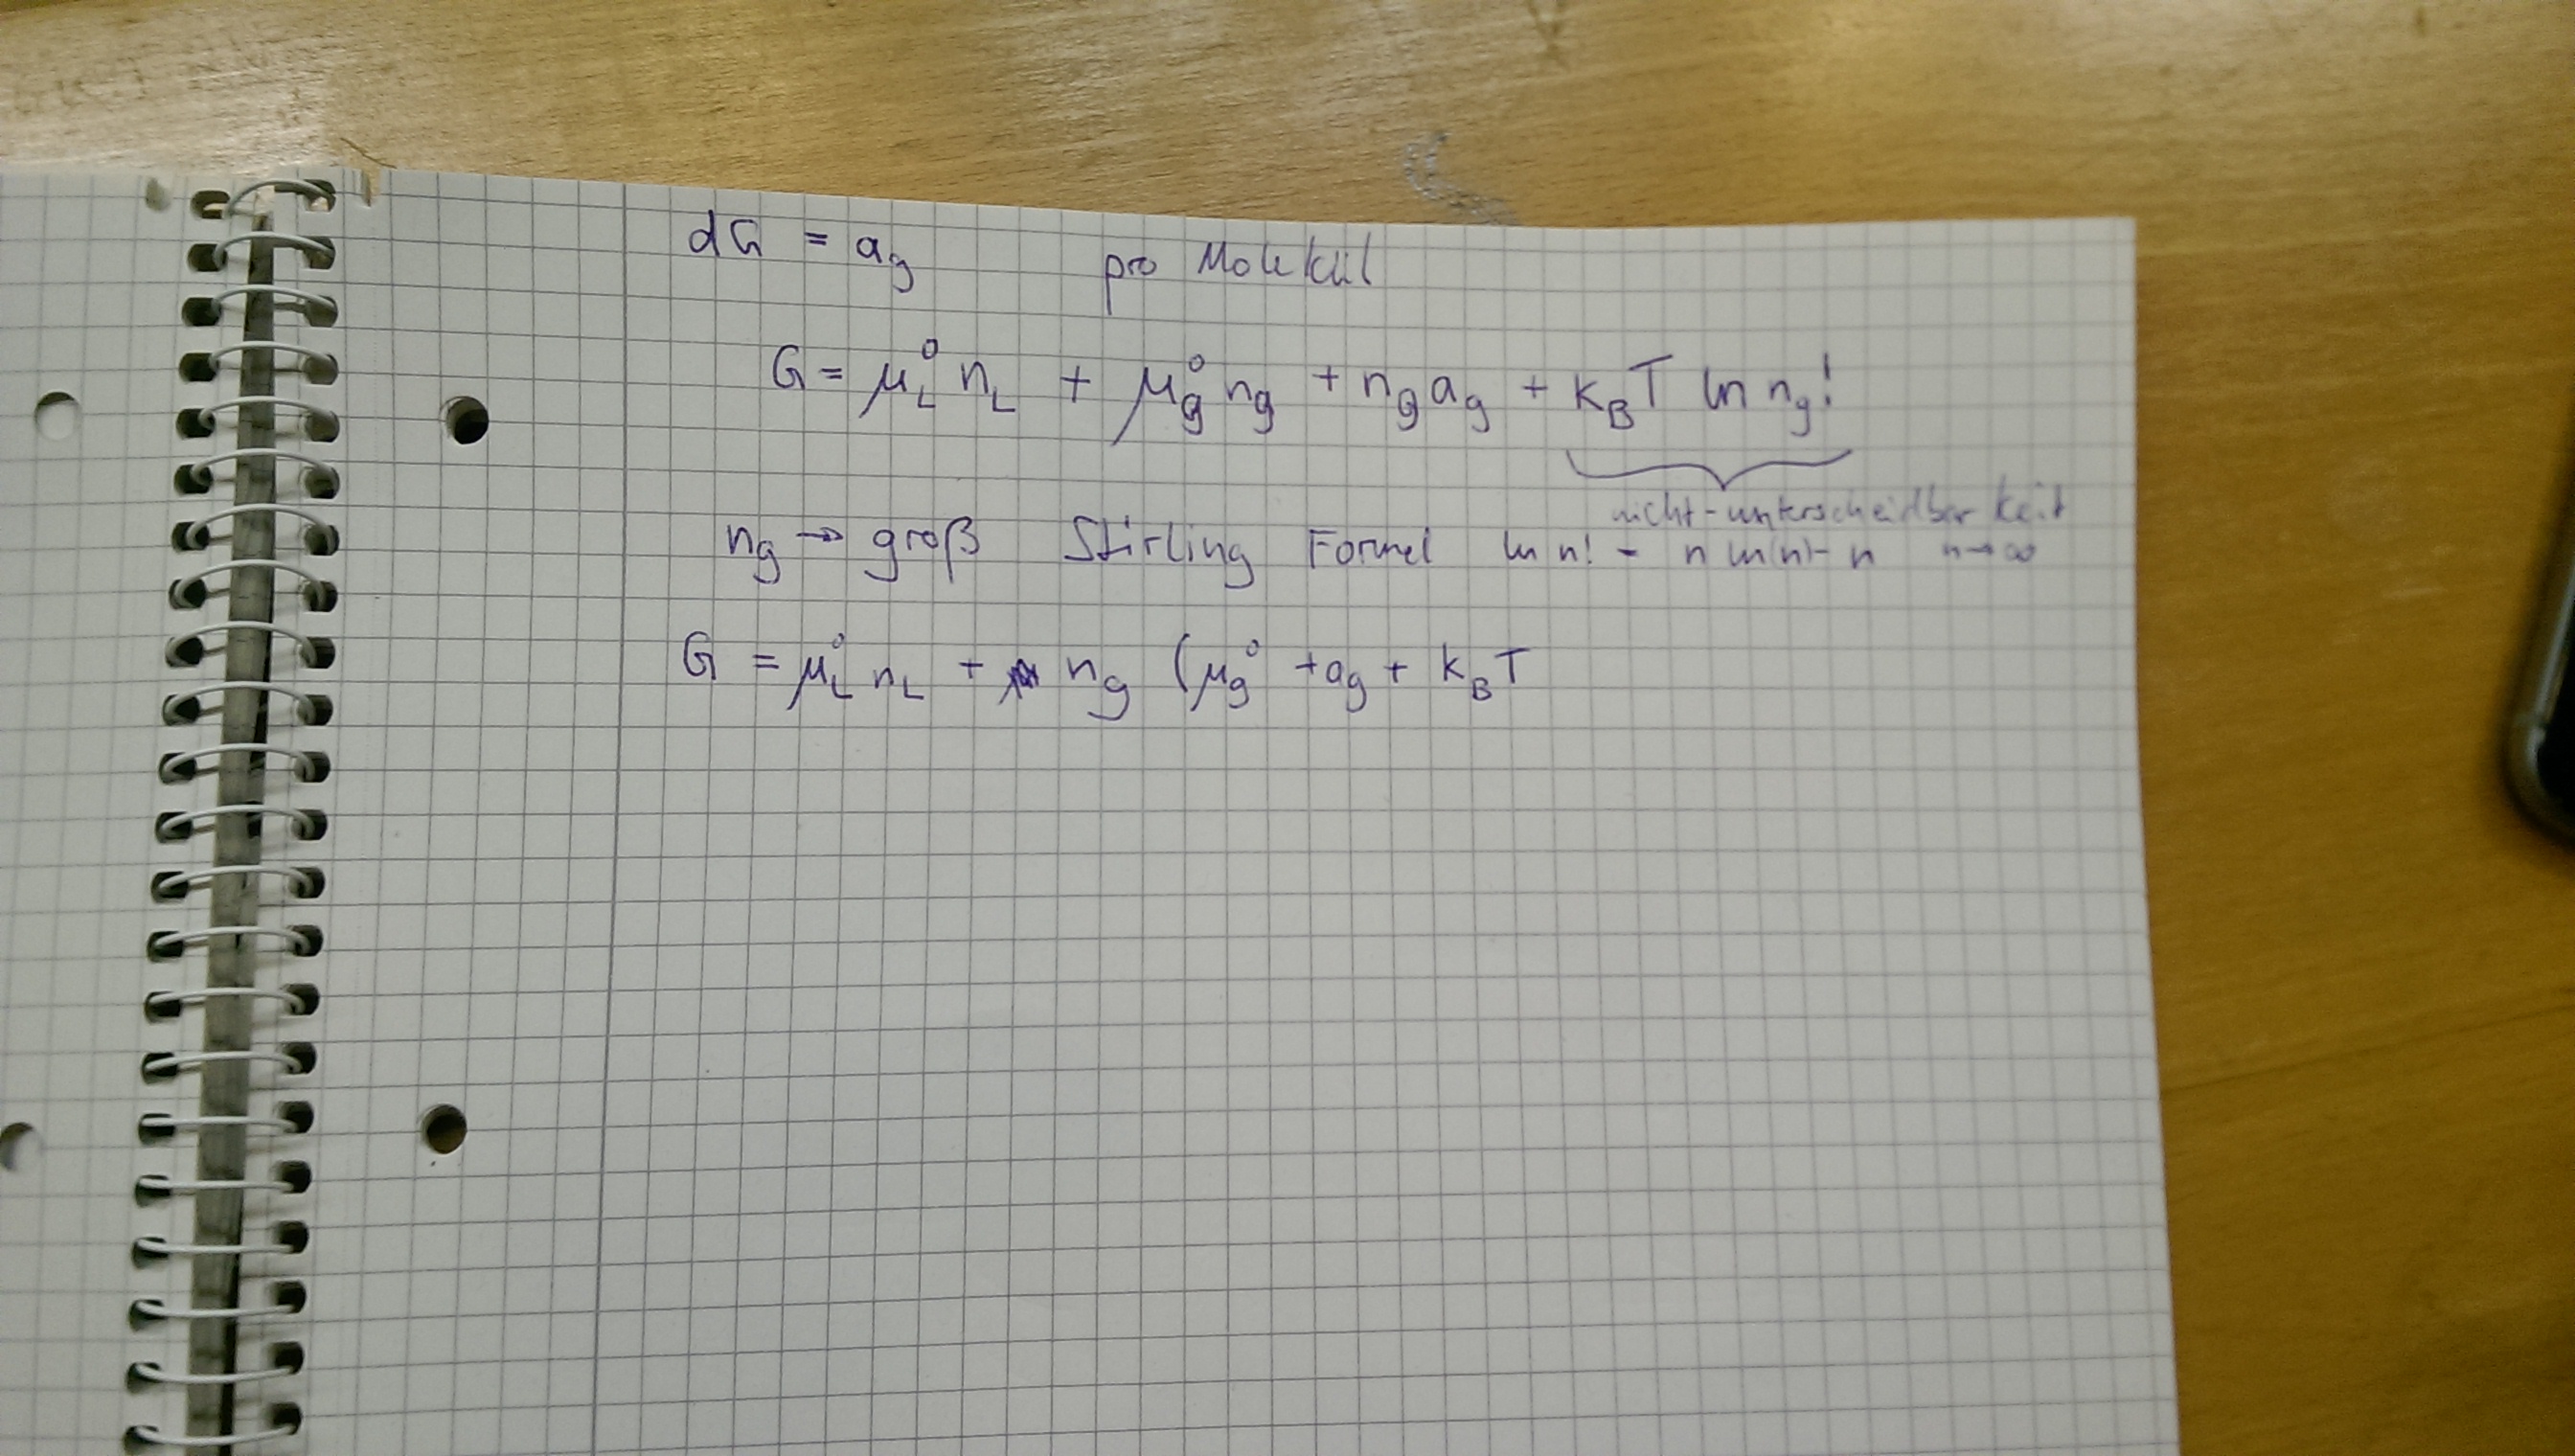 dG = a_g pro Molekül
G = μ_L^0 n_L + μ_g^0 n_g + n_g a_g + k_B T ln n_g!
nicht-unterscheidbarkeit
n_g → groß Stirling Formel ln n! = n ln(n) - n n→∞
G = μ_L^0 n_L + n_g (μ_g^0 + a_g + k_B T